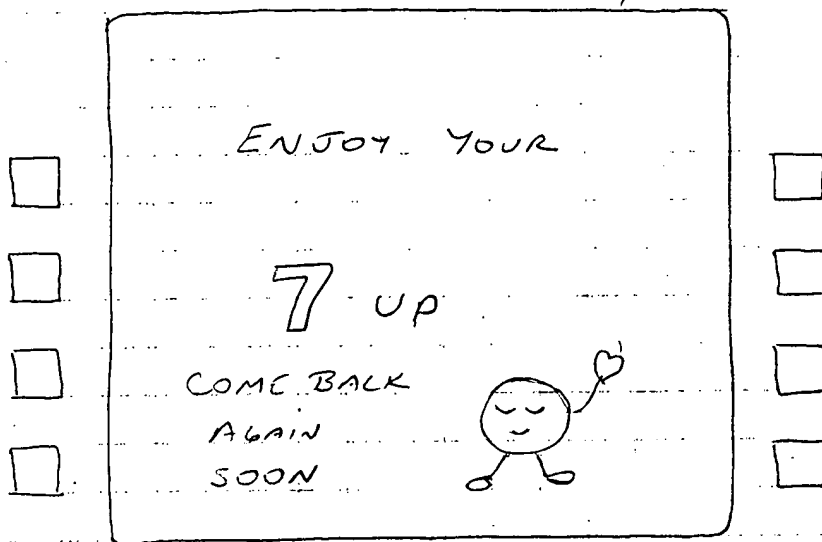 ENJOY YOUR
7 UP
COME BACK
AGAIN
SOON